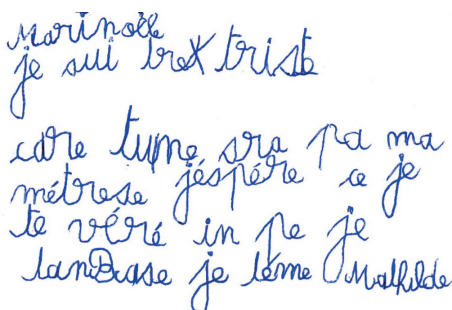 Marinoëlle
je sui tret triste
care tume sra pa ma
métrese jéspére ce je
te véré in pe je
tanBrase je téme Mathilde